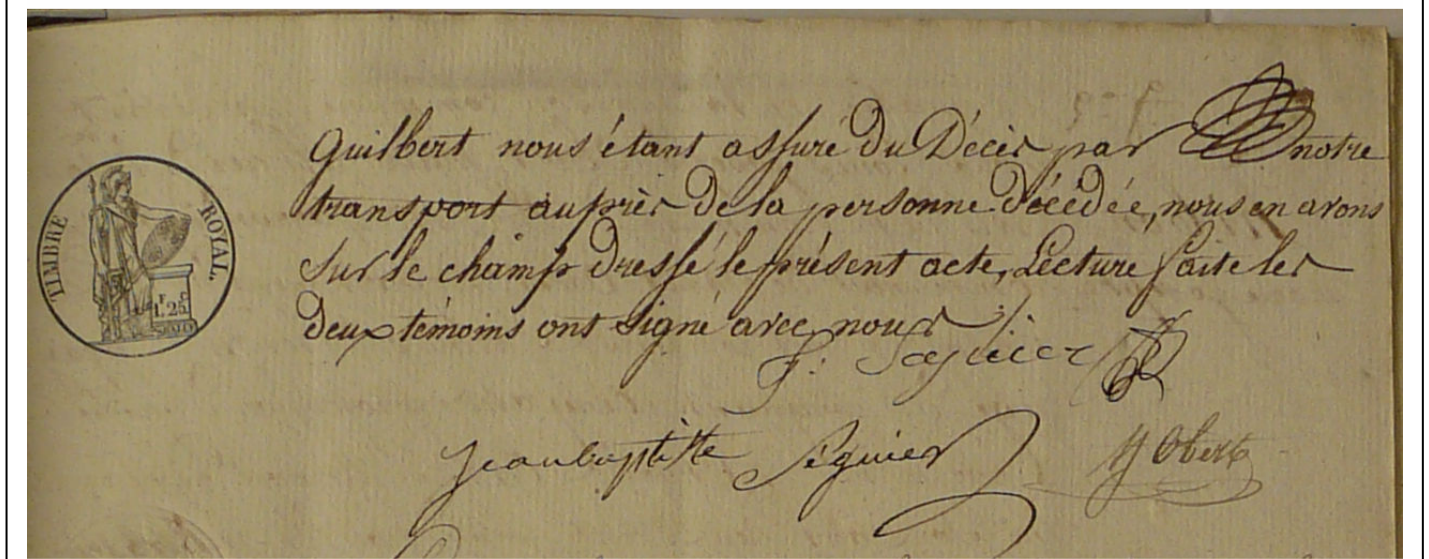 TIMBRE ROYAL.
1 F. 25 C.
Guilbert nous étant assuré du Décès par notre
transport auprès de la personne décédée, nous en avons
sur le champ dressé le présent acte, Lecture faite les
deux témoins ont signé avec nous ./.
Jean baptiste Séguier
Obert